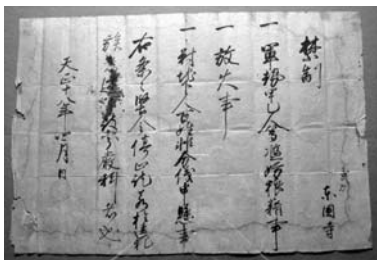 禁制
東国寺
一 軍勢甲乙人等濫妨狼藉事
一 放火事
一 対地下人百姓非分儀申懸事
右条々堅令停止訖若於違犯
族者速可被処厳科者也
天正十八年四月日